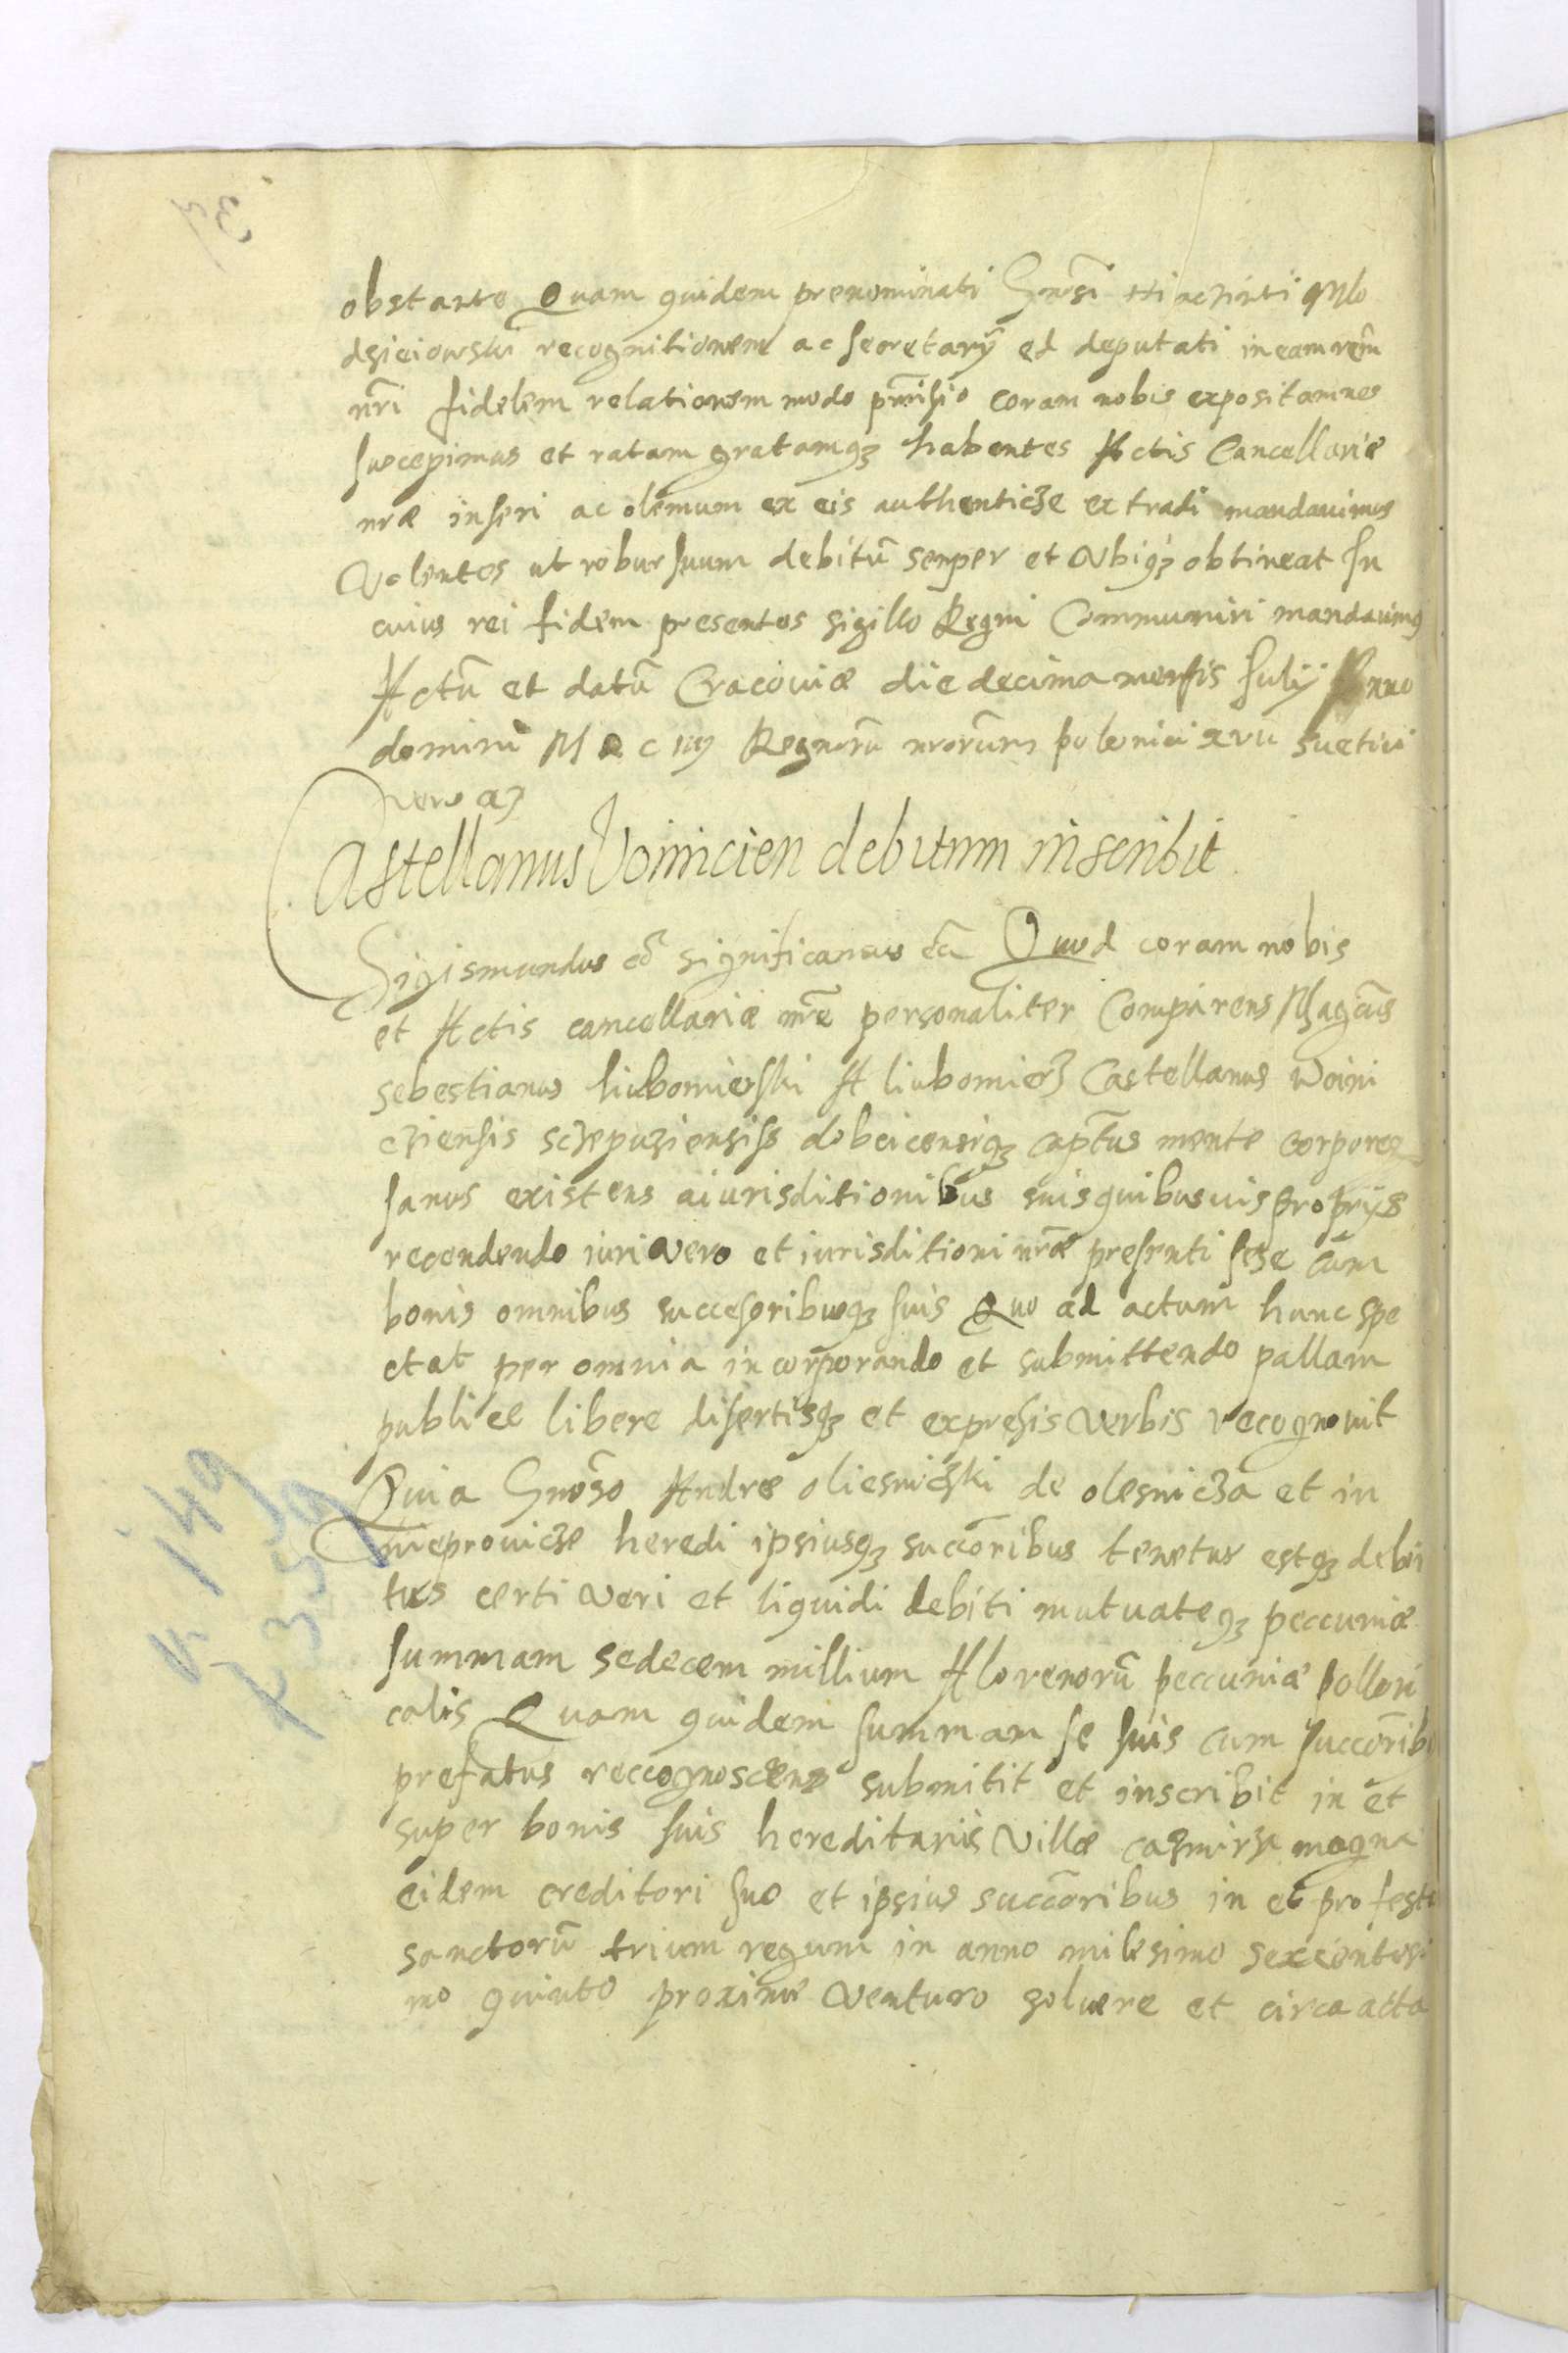 obstante Quam quidem prenominati Gnꝛsi Hiaczinti Mlo
dzieiowski recognitionem ac secretarÿ ed deputati in eam rem̃
nr̃i fidelem relationem modo pr̃misso coram nobis expositam nos
suscepimus et ratam gratamqꝫ habentes Actis Cancellariæ
nræ inseri ac olemum ex eis authenticze extradi mandauimus
Volentes ut robur suum debitũ senper et Vbiqꝫ obtineat In
cuius rei fidem presentes sigillo Regni Communiri mandauimꝰ
Actũ et datũ Cracouiæ die decima mensis Julij Anno
domini M D C iiij Regnorũ nrorũm poloniæ xvii Suetiæ
vero xi
Castellanus Voinicien debitum inscribit
Sigismundus etc̃ significamus etc̃ Quod coram nobis
et Actis cancellariæ nr̃e personaliter Comparens Magcũs
sebestianus liubomierski A liubomierz Castellanus Woini
cziensis sczepuziensiss dobcicensiqꝫ capt̃us mente corporeqꝫ
sanus existens a iurisditionibus suis quibusuis proprÿs
recendendo iuri Vero et iurisditioni nr̃æ presenti sese cũm
bonis omnibus succesoribusqꝫ suis Quo ad actum hunc spe
ctat per omnia incorporando et submittendo pallam
publice libere disertisqꝫ et expresis Verbis recognouit
Quia Gnõso Andreæ oliesniczki de olesnicza et in
meprouicze heredi ipsiusqꝫ succõribus tenetur estqꝫ debi
tus certi Veri et liquidi debiti mutuateqꝫ peccuniæ
summam sedecem millium Florenorũ peccuniæ polloni
calis Quam quidem summam se suis cum succõribꝰ
prefatus reccognoscens submitit et inscribit in et
super bonis suis hereditariis Villæ cazmirza magna
eidem creditori suo et ipsius succõribus in et pro festo
sanctorũ trium regum in anno milesimo sexcentesi
mo quinto proxime Venturo soluere et circa acta